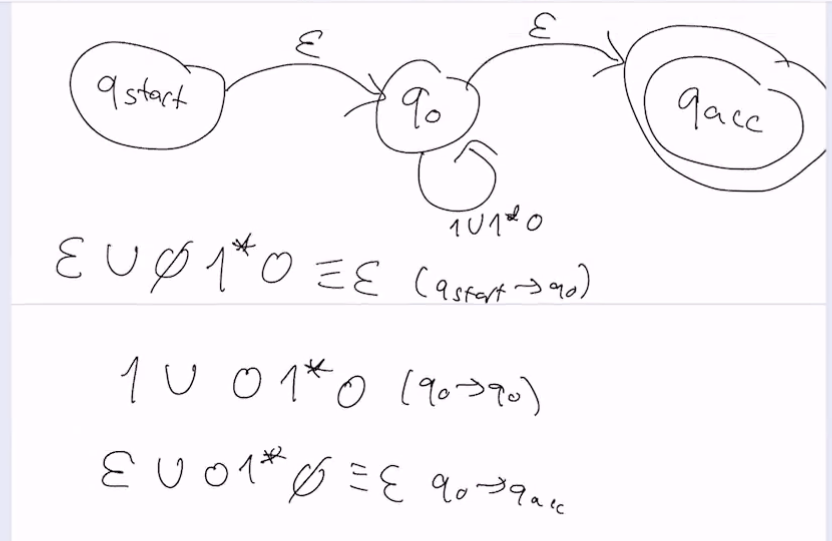 ε ε
qstart q0 qacc
1∪1*0
ε ∪ ∅ 1* 0 ≡ ε (qstart → q0)
1 ∪ 0 1* 0 (q0 → q0)
ε ∪ 0 1* ∅ ≡ ε q0 → qacc